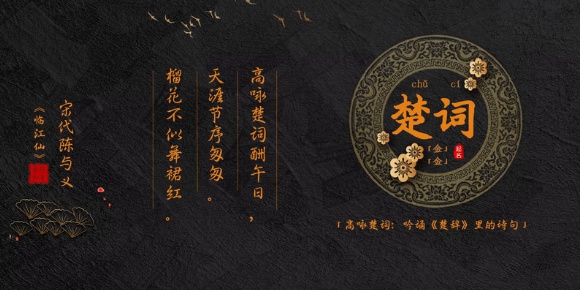 chǔ cí
楚词
「金」
「金」
起名
「高咏楚词：吟诵《楚辞》里的诗句」
高咏楚词酬午日，
天涯节序匆匆。
榴花不似舞裙红。
宋代陈与义
《临江仙》